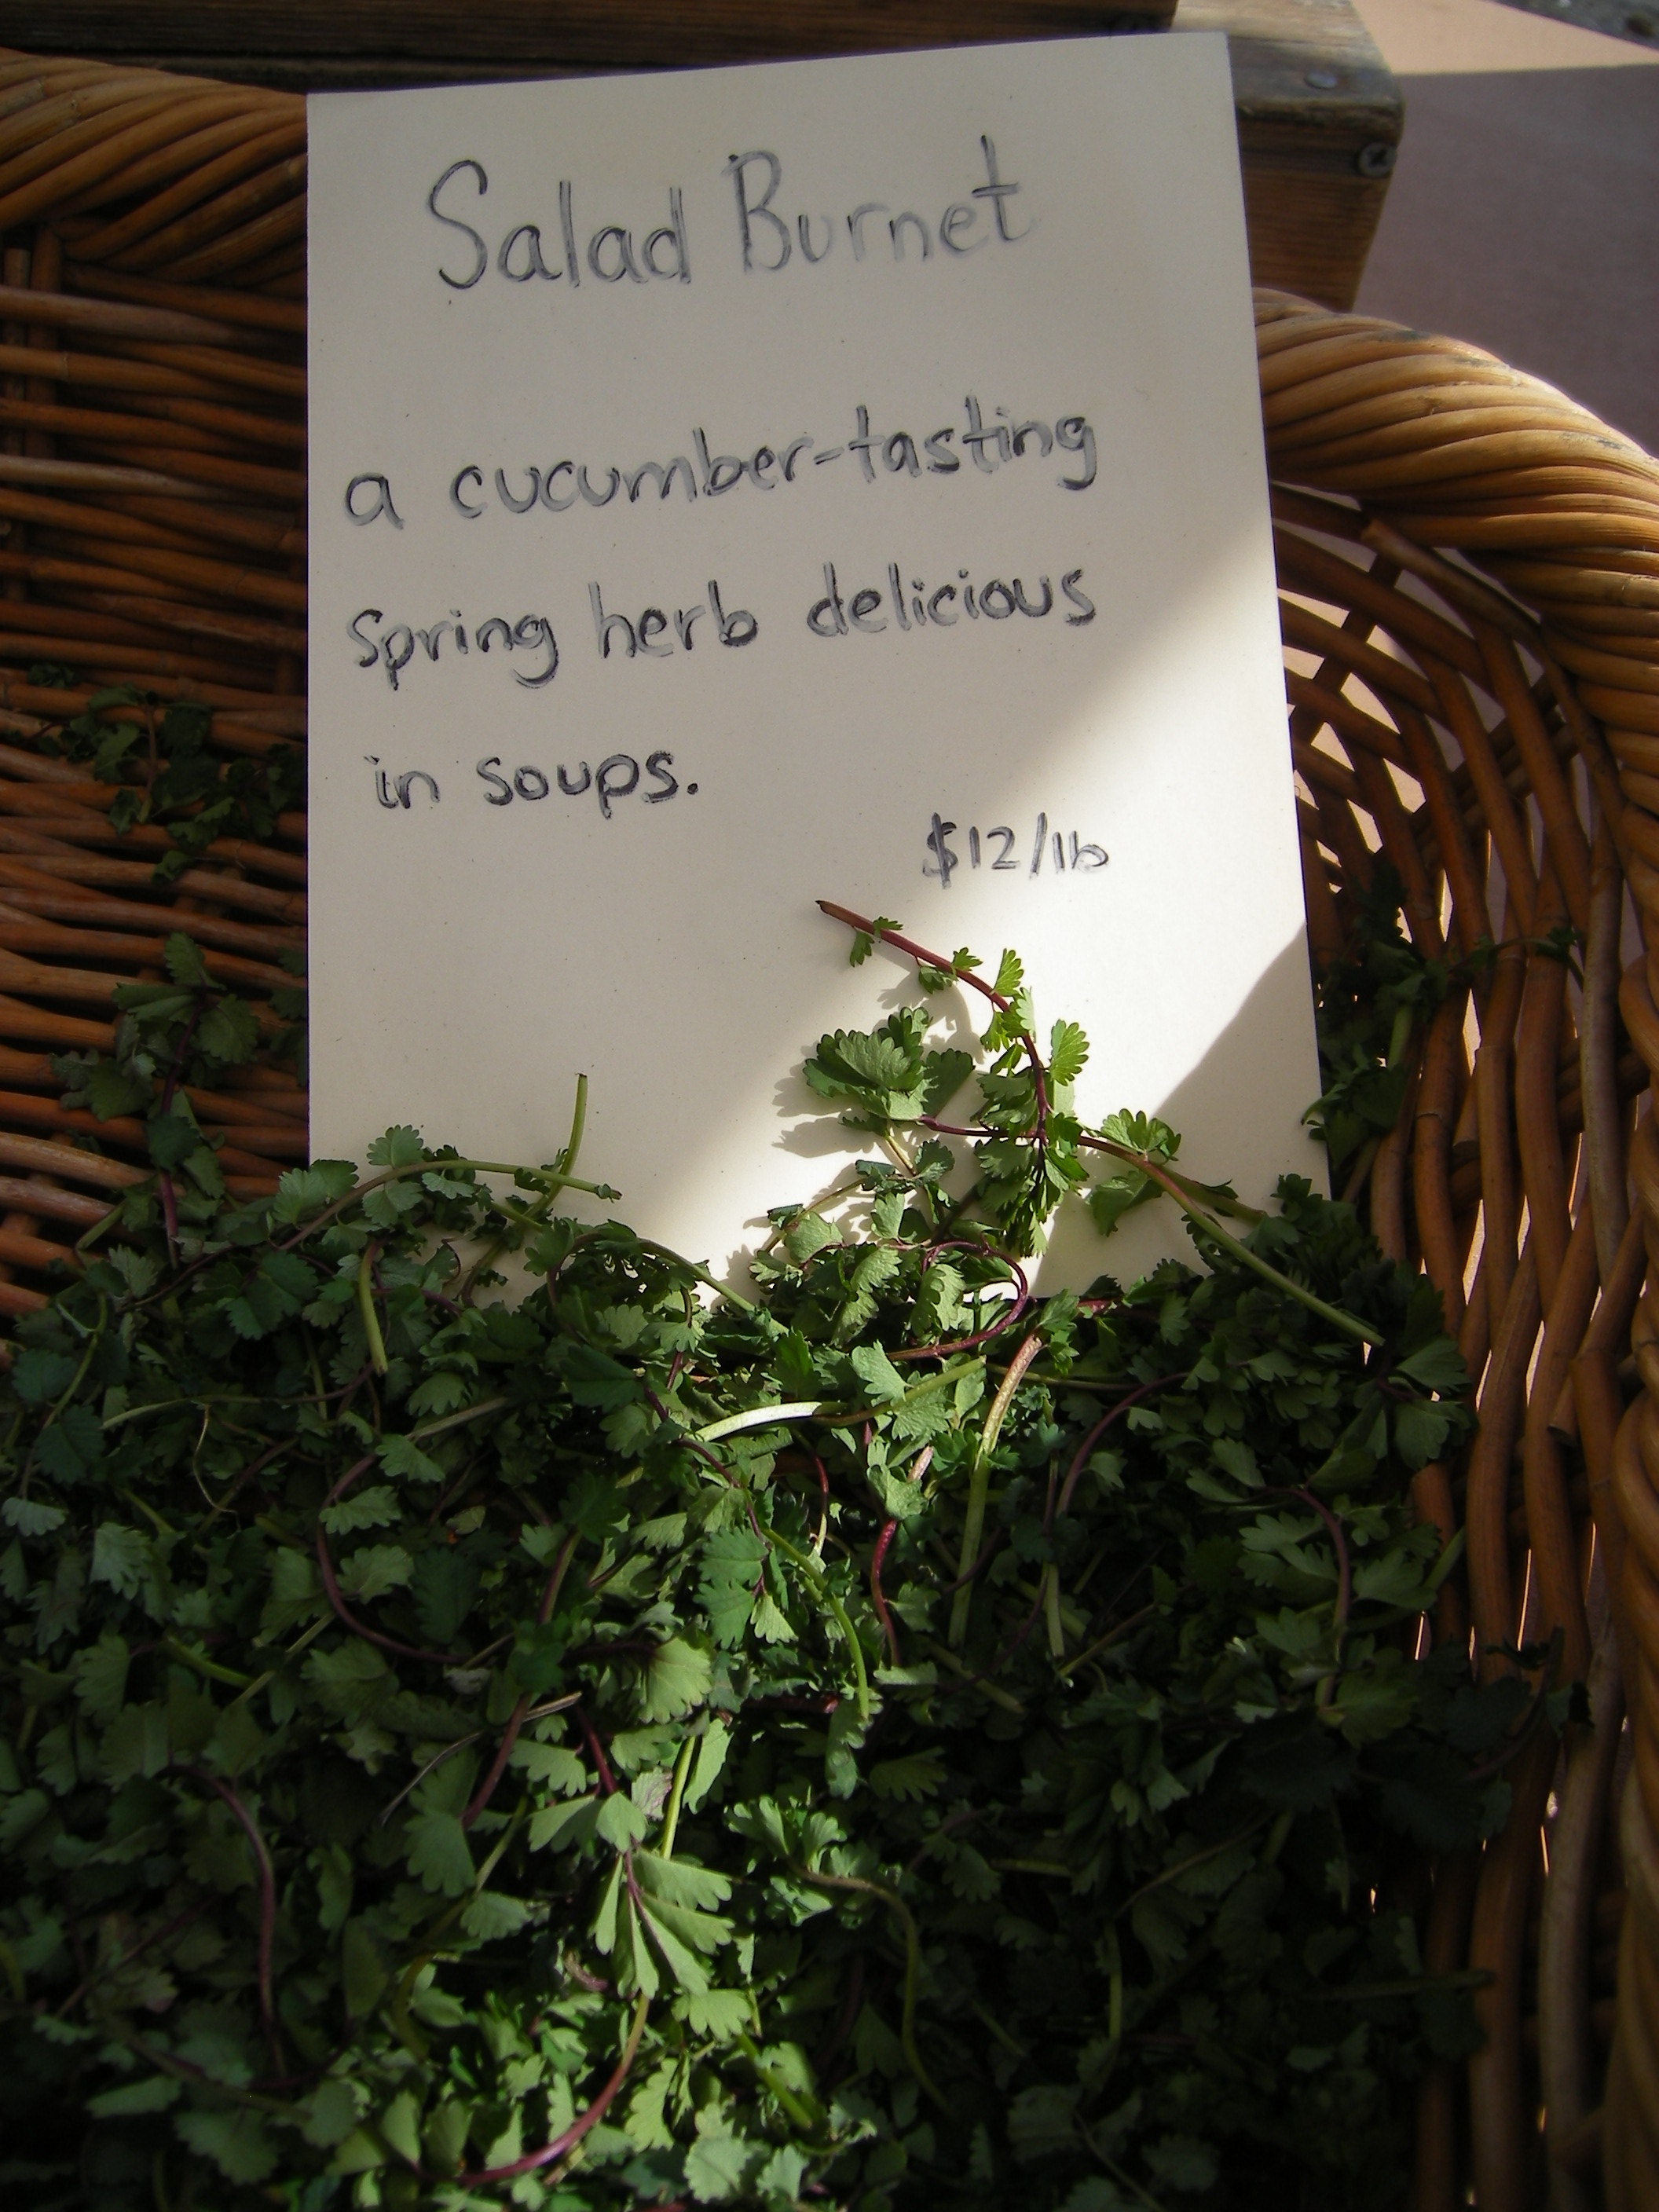 Salad Burnet
a cucumber-tasting
spring herb delicious
in soups.
$12/lb